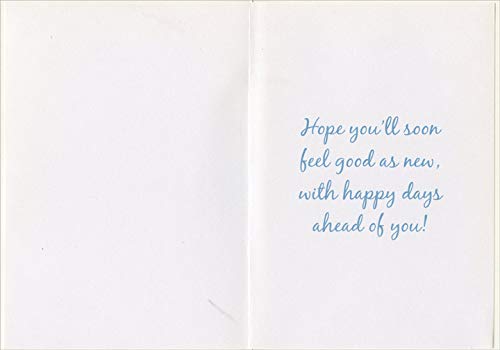 Hope you'll soon
feel good as new,
with happy days
ahead of you!